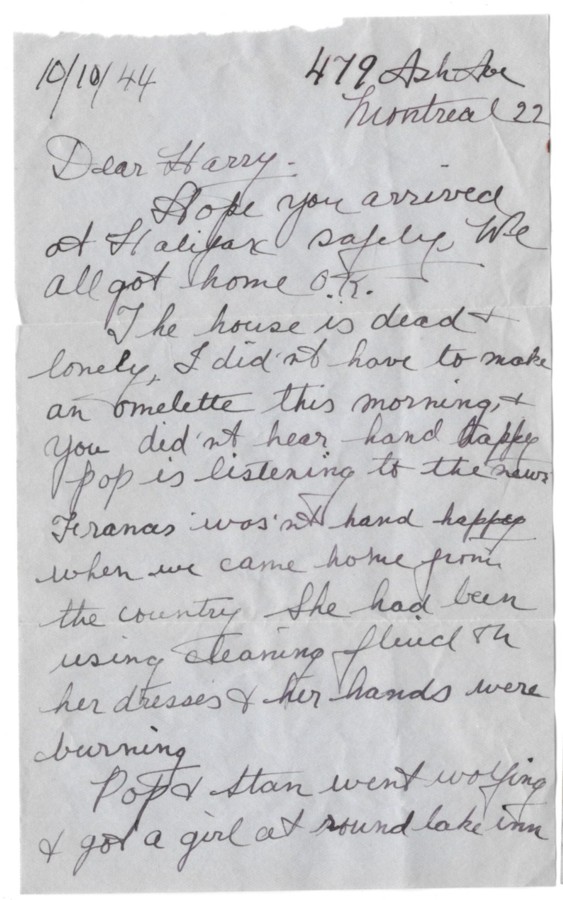 10/10/44
479 Ash Ave
Montreal 22
Dear Harry.
Hope you arrived
at Halifax safely. We
all got home O.K.
The house is dead &
lonely, I did'nt have to make
an omelette this morning, &
you did'nt hear hand happy
Pop is listening to the news
was'nt hand happy
when we came home from
the country She had been
using cleaning fluid on
her dresses & her hands were
burning
Pop & Stan went wolfing
& got a girl at round lake inn